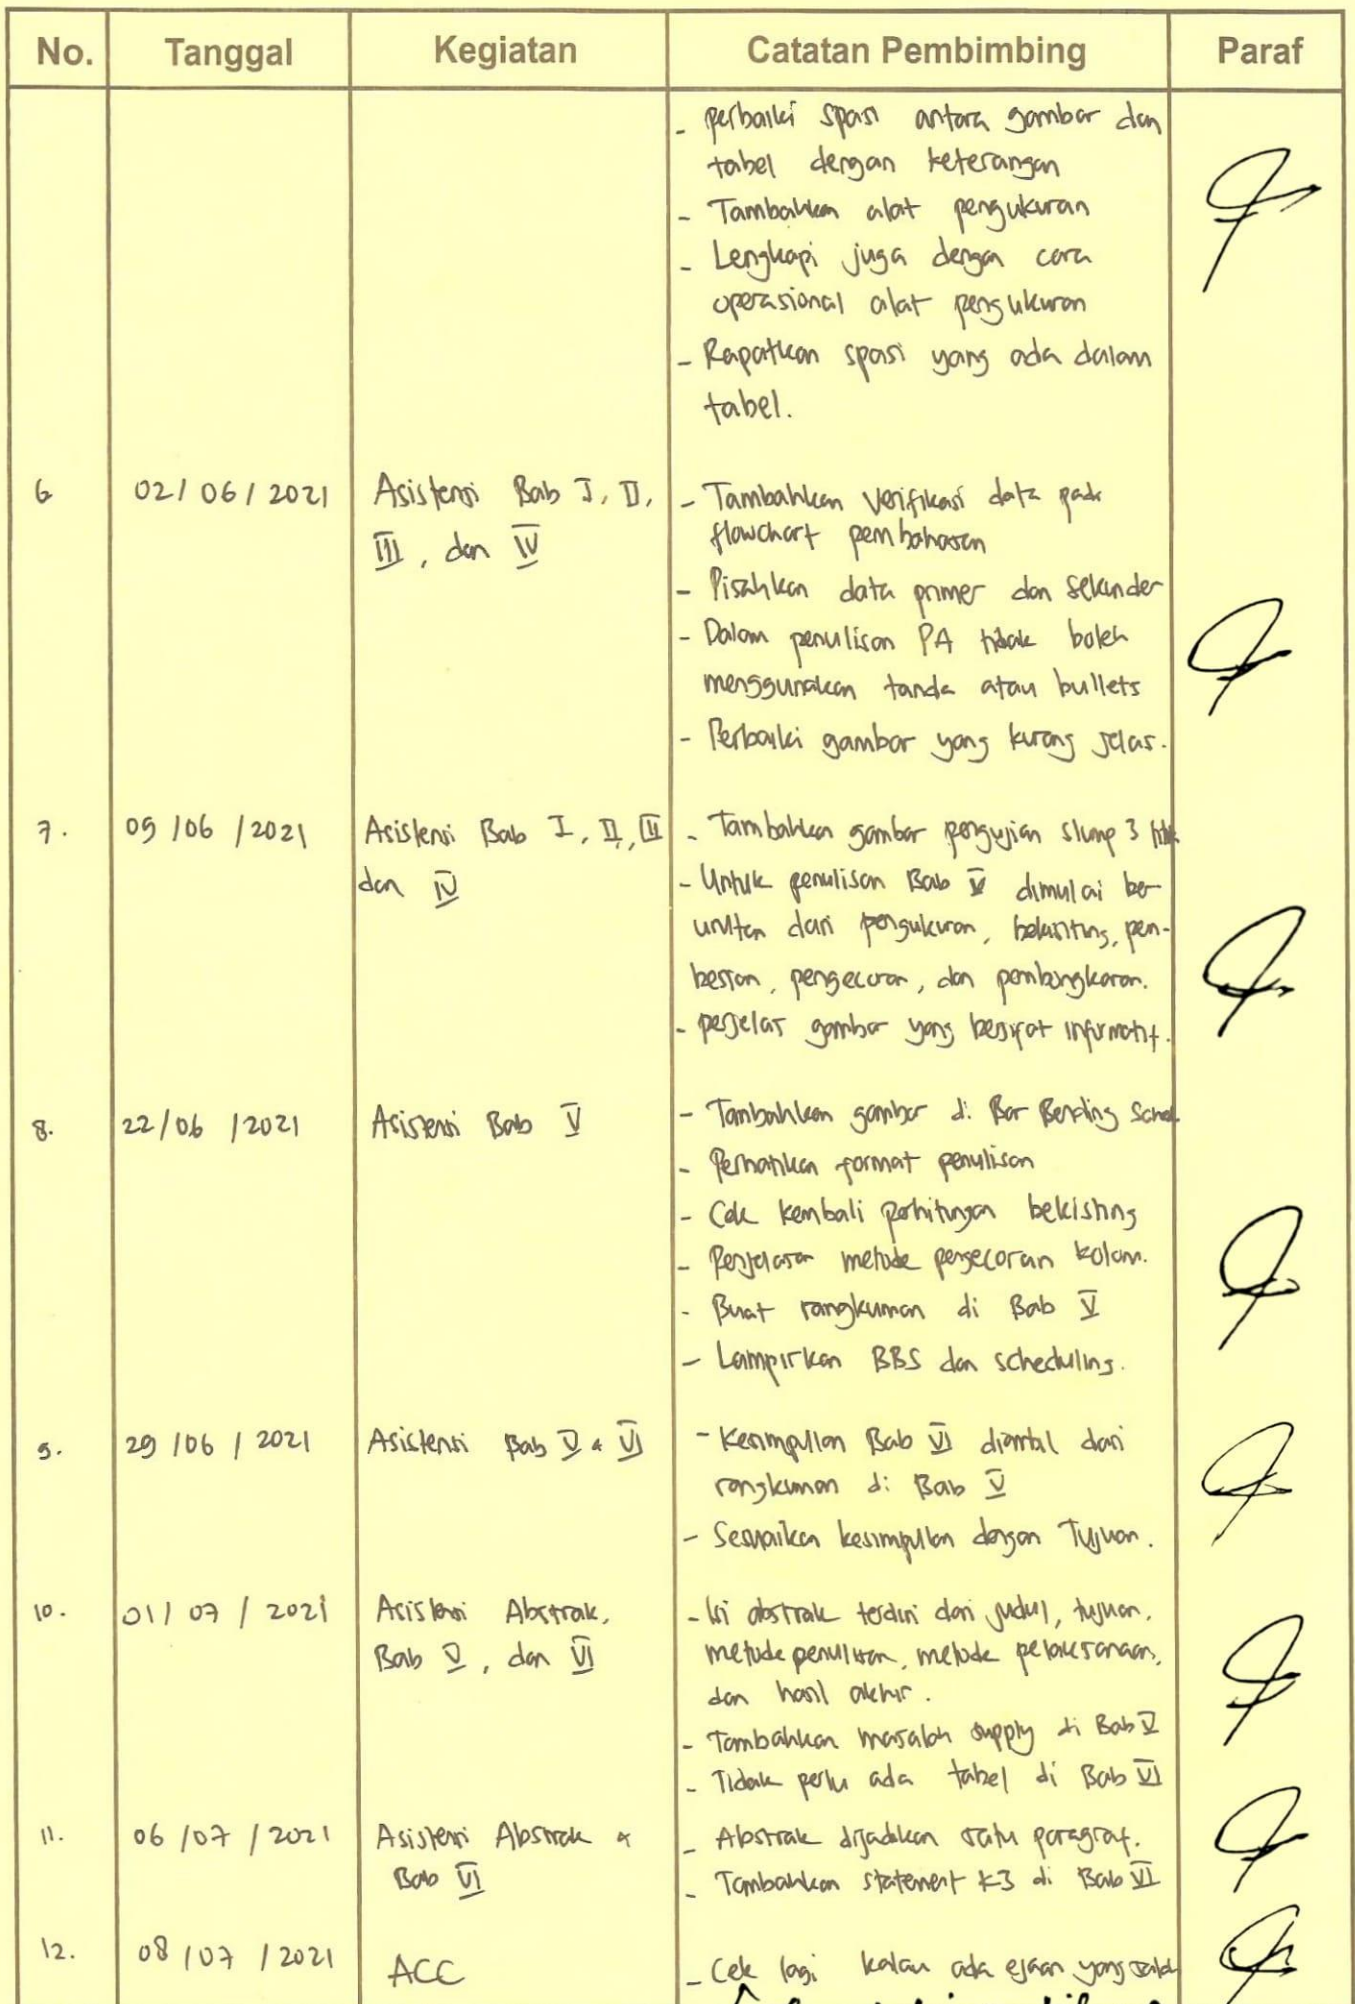 No. Tanggal Kegiatan Catatan Pembimbing Paraf
- perbaiki spasi antara gambar dan
tabel dengan keterangan
- Tambahkan alat pengukuran
- Lengkapi juga dengan cara
operasional alat pengukuran
- Rapatkan spasi yang ada dalam
tabel.
6 02/06/2021 Asistensi Bab I, II, - Tambahkan verifikasi data pada
III, dan IV flowchart pembahasan
- Pisahkan data primer dan sekunder
- Dalam penulisan PA tidak boleh
menggunakan tanda atau bullets
- Perbaiki gambar yang kurang jelas.
7. 09/06/2021 Asistensi Bab I, II, III - Tambahkan gambar pengujian slump 3 titik
dan IV - Untuk penulisan Bab V dimulai be-
urutan dari pengukuran, bekisting, pem-
besian, pengecoran, dan pembongkaran.
- perjelas gambar yang bersifat informatif.
8. 22/06/2021 Asistensi Bab V - Tambahkan gambar di Bar Bending Sched
- Perhatikan format penulisan
- Cek kembali perhitungan bekisting
- Penjelasan metode pengecoran kolom.
- Buat rangkuman di Bab V
- Lampirkan BBS dan scheduling.
9. 29/06/2021 Asistensi Bab V & VI - Kesimpulan Bab VI diambil dari
rangkuman di Bab V
- Sesuaikan kesimpulan dengan Tujuan.
10. 01/07/2021 Asistensi Abstrak, - Isi abstrak terdiri dari judul, tujuan,
Bab V, dan VI metode penulisan, metode pelaksanaan,
dan hasil akhir.
- Tambahkan masalah supply di Bab V
- Tidak perlu ada tabel di Bab VI
11. 06/07/2021 Asistensi Abstrak & - Abstrak dijadikan satu paragraf.
Bab VI - Tambahkan statement K3 di Bab VI
12. 08/07/2021 ACC - Cek lagi kalau ada ejaan yang salah